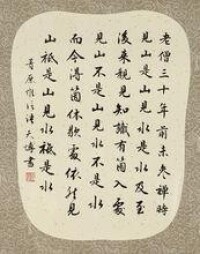 老僧三十年前未参禪時
見山是山見水是水及至
後来親見知識有箇入處
見山不是山見水不是水
而今得箇体歇處依然見
山祇是山見水祇是水
青原惟信语天博書